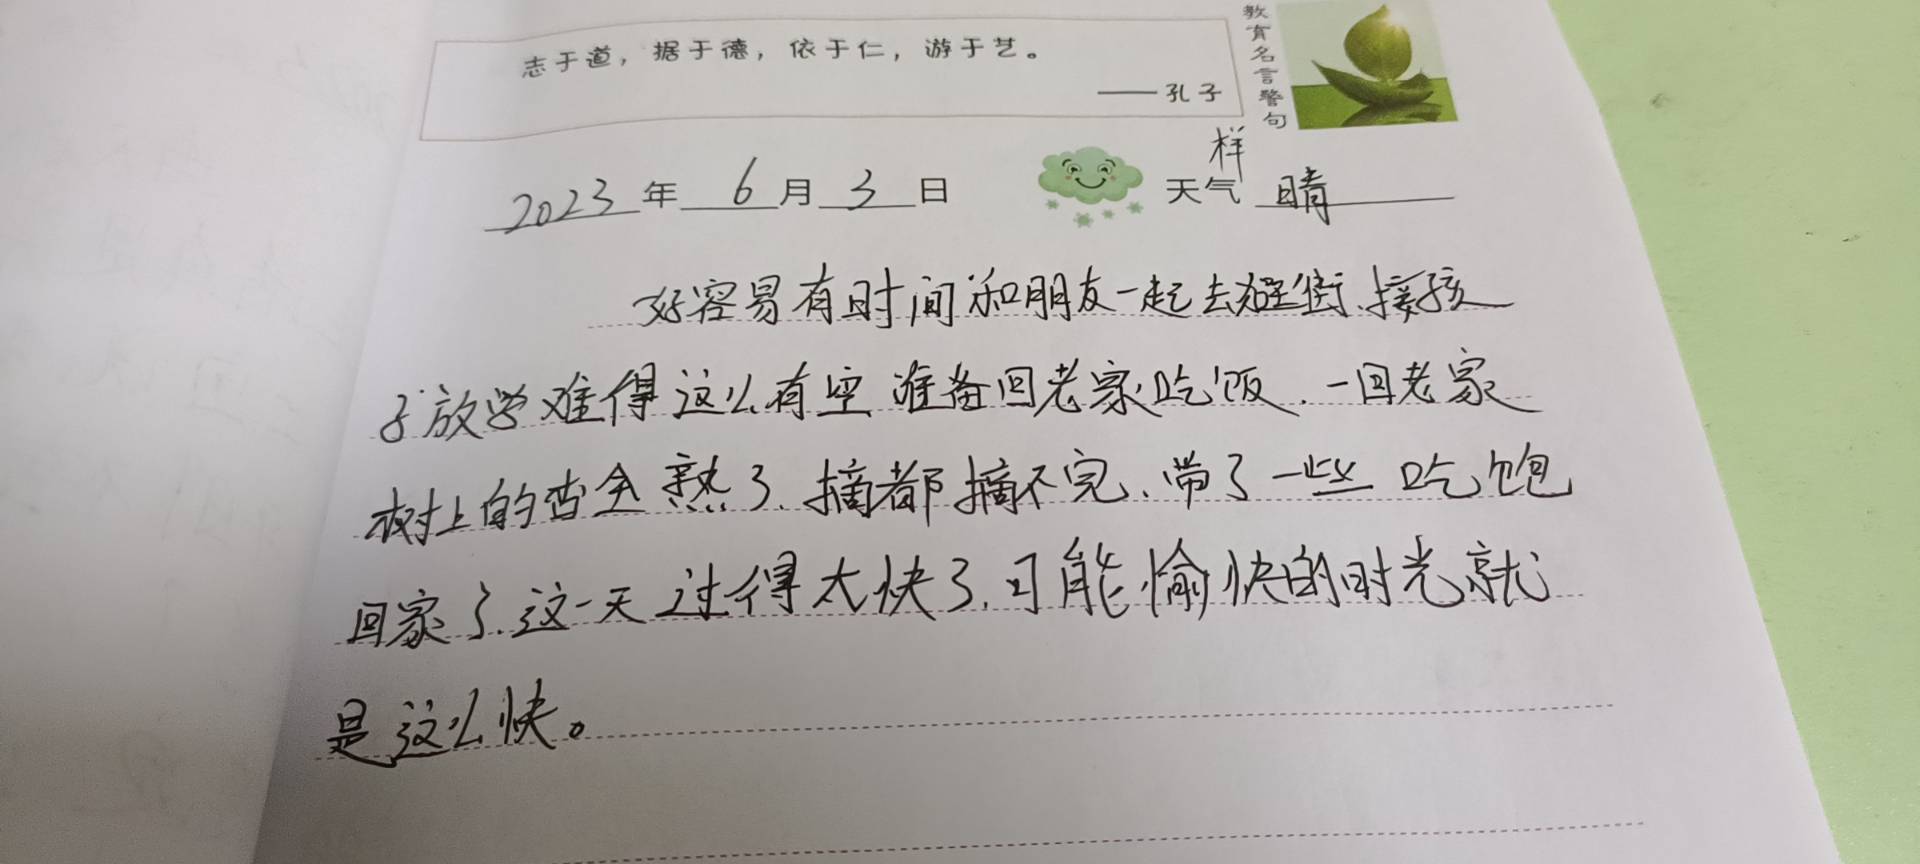 志于道，据于德，依于仁，游于艺。
——孔子
教育名言警句
样
2023年6月3日 天气 晴
好容易有时间和朋友一起去逛街、接孩
子放学难得这么有空准备回老家吃饭、一回老家
树上的杏全熟了、摘都摘不完、带了一些吃饱
回家了、这一天过得太快了、可能愉快的时光就
是这么快。